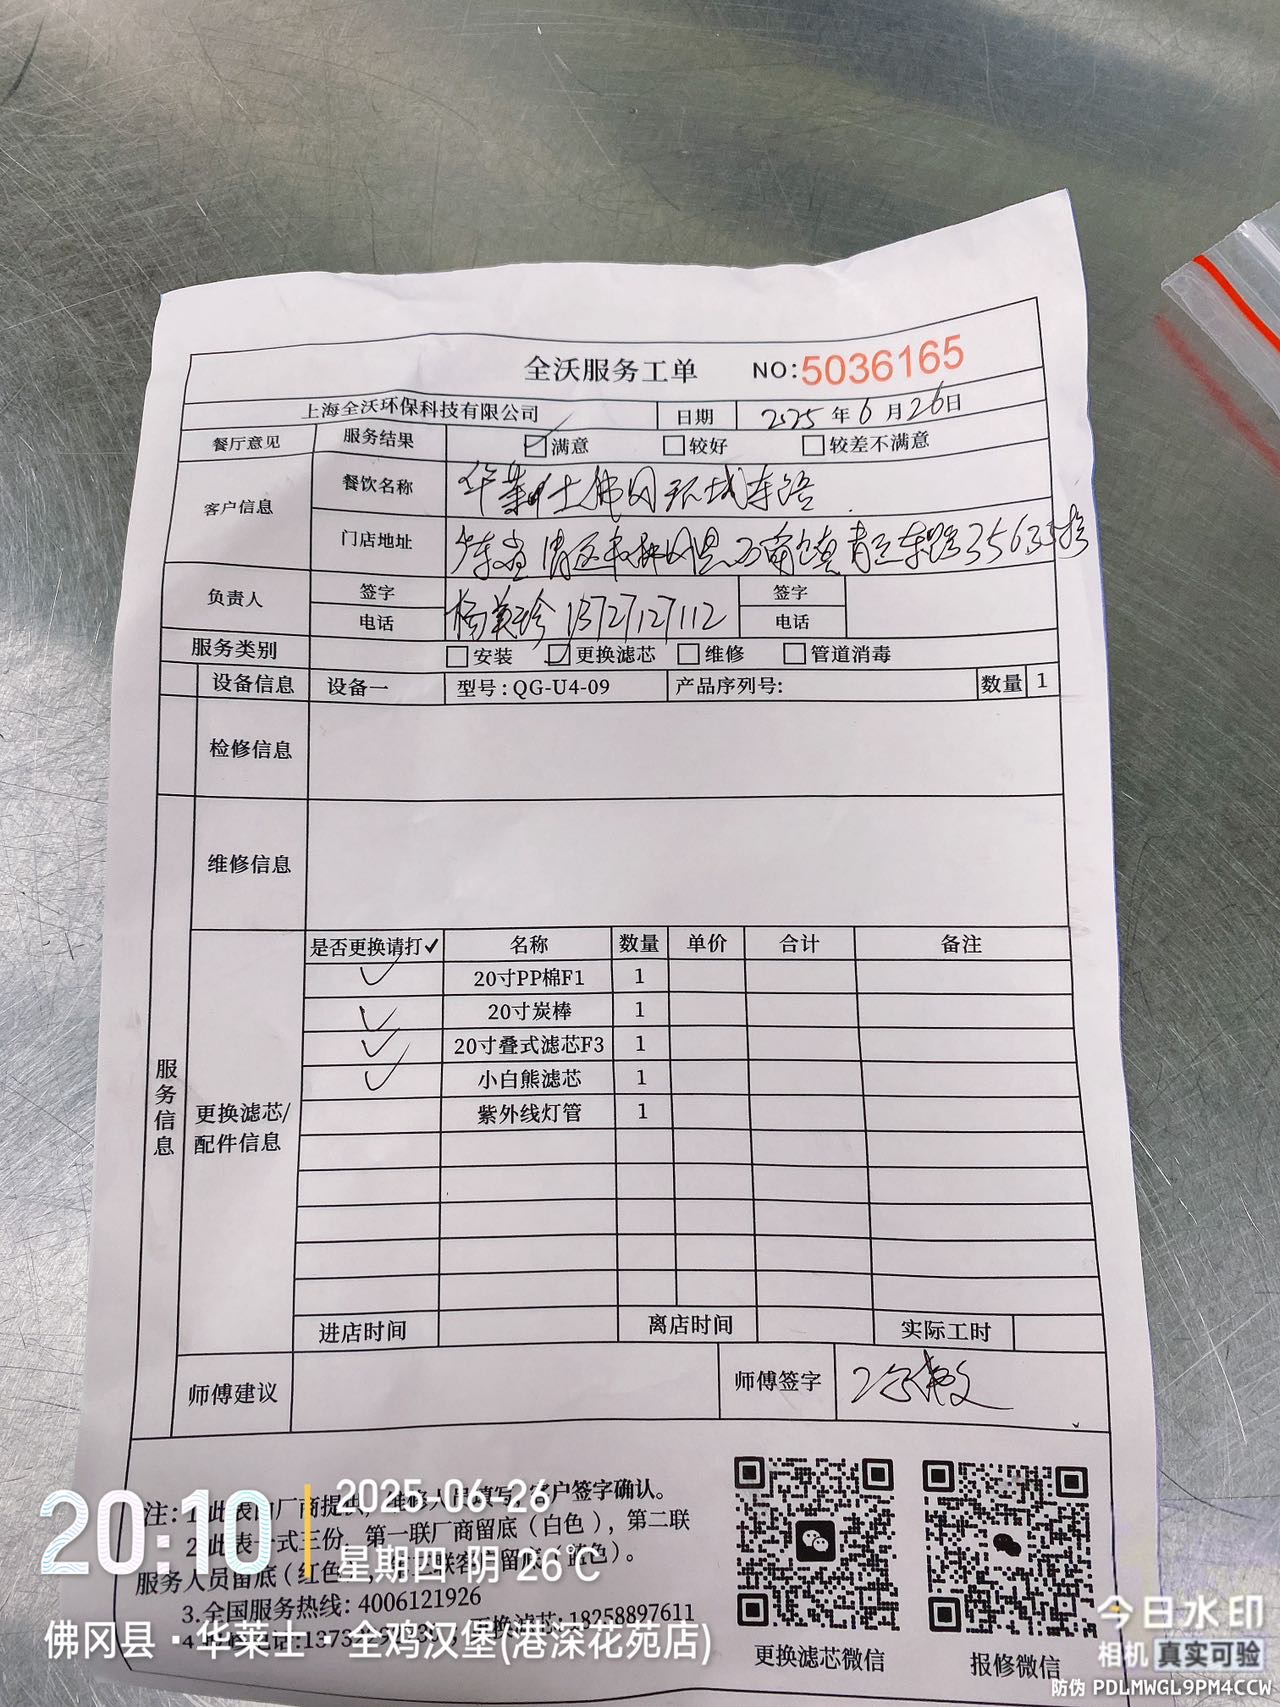 全沃服务工单 NO:5036165
上海全沃环保科技有限公司 日期 2025年6月26日
餐厅意见 服务结果 满意 较好 较差不满意
客户信息 餐饮名称 华莱士佛冈环城东路
门店地址
负责人 签字 签字
电话 13727127112 电话
服务类别 安装 更换滤芯 维修 管道消毒
设备信息 设备一 型号:QG-U4-09 产品序列号: 数量 1
检修信息
维修信息
服务信息
更换滤芯/
配件信息
是否更换请打✓ 名称 数量 单价 合计 备注
✓ 20寸PP棉F1 1
✓ 20寸炭棒 1
✓ 20寸叠式滤芯F3 1
✓ 小白熊滤芯 1
紫外线灯管 1
进店时间 离店时间 实际工时
师傅建议 师傅签字
注:1.此表由厂商提供,维修人员填写,客户签字确认。
2.此表一式三份,第一联厂商留底(白色),第二联
服务人员留底(红色),第三联客户留底(蓝色)。
3.全国服务热线:4006121926
更换滤芯:18258897611
更换滤芯微信 报修微信
20:10
2025-06-26
星期四 阴 26℃
佛冈县·华莱士·全鸡汉堡(港深花苑店)
今日水印
相机 真实可验
防伪 PDLMWGL9PM4CCW